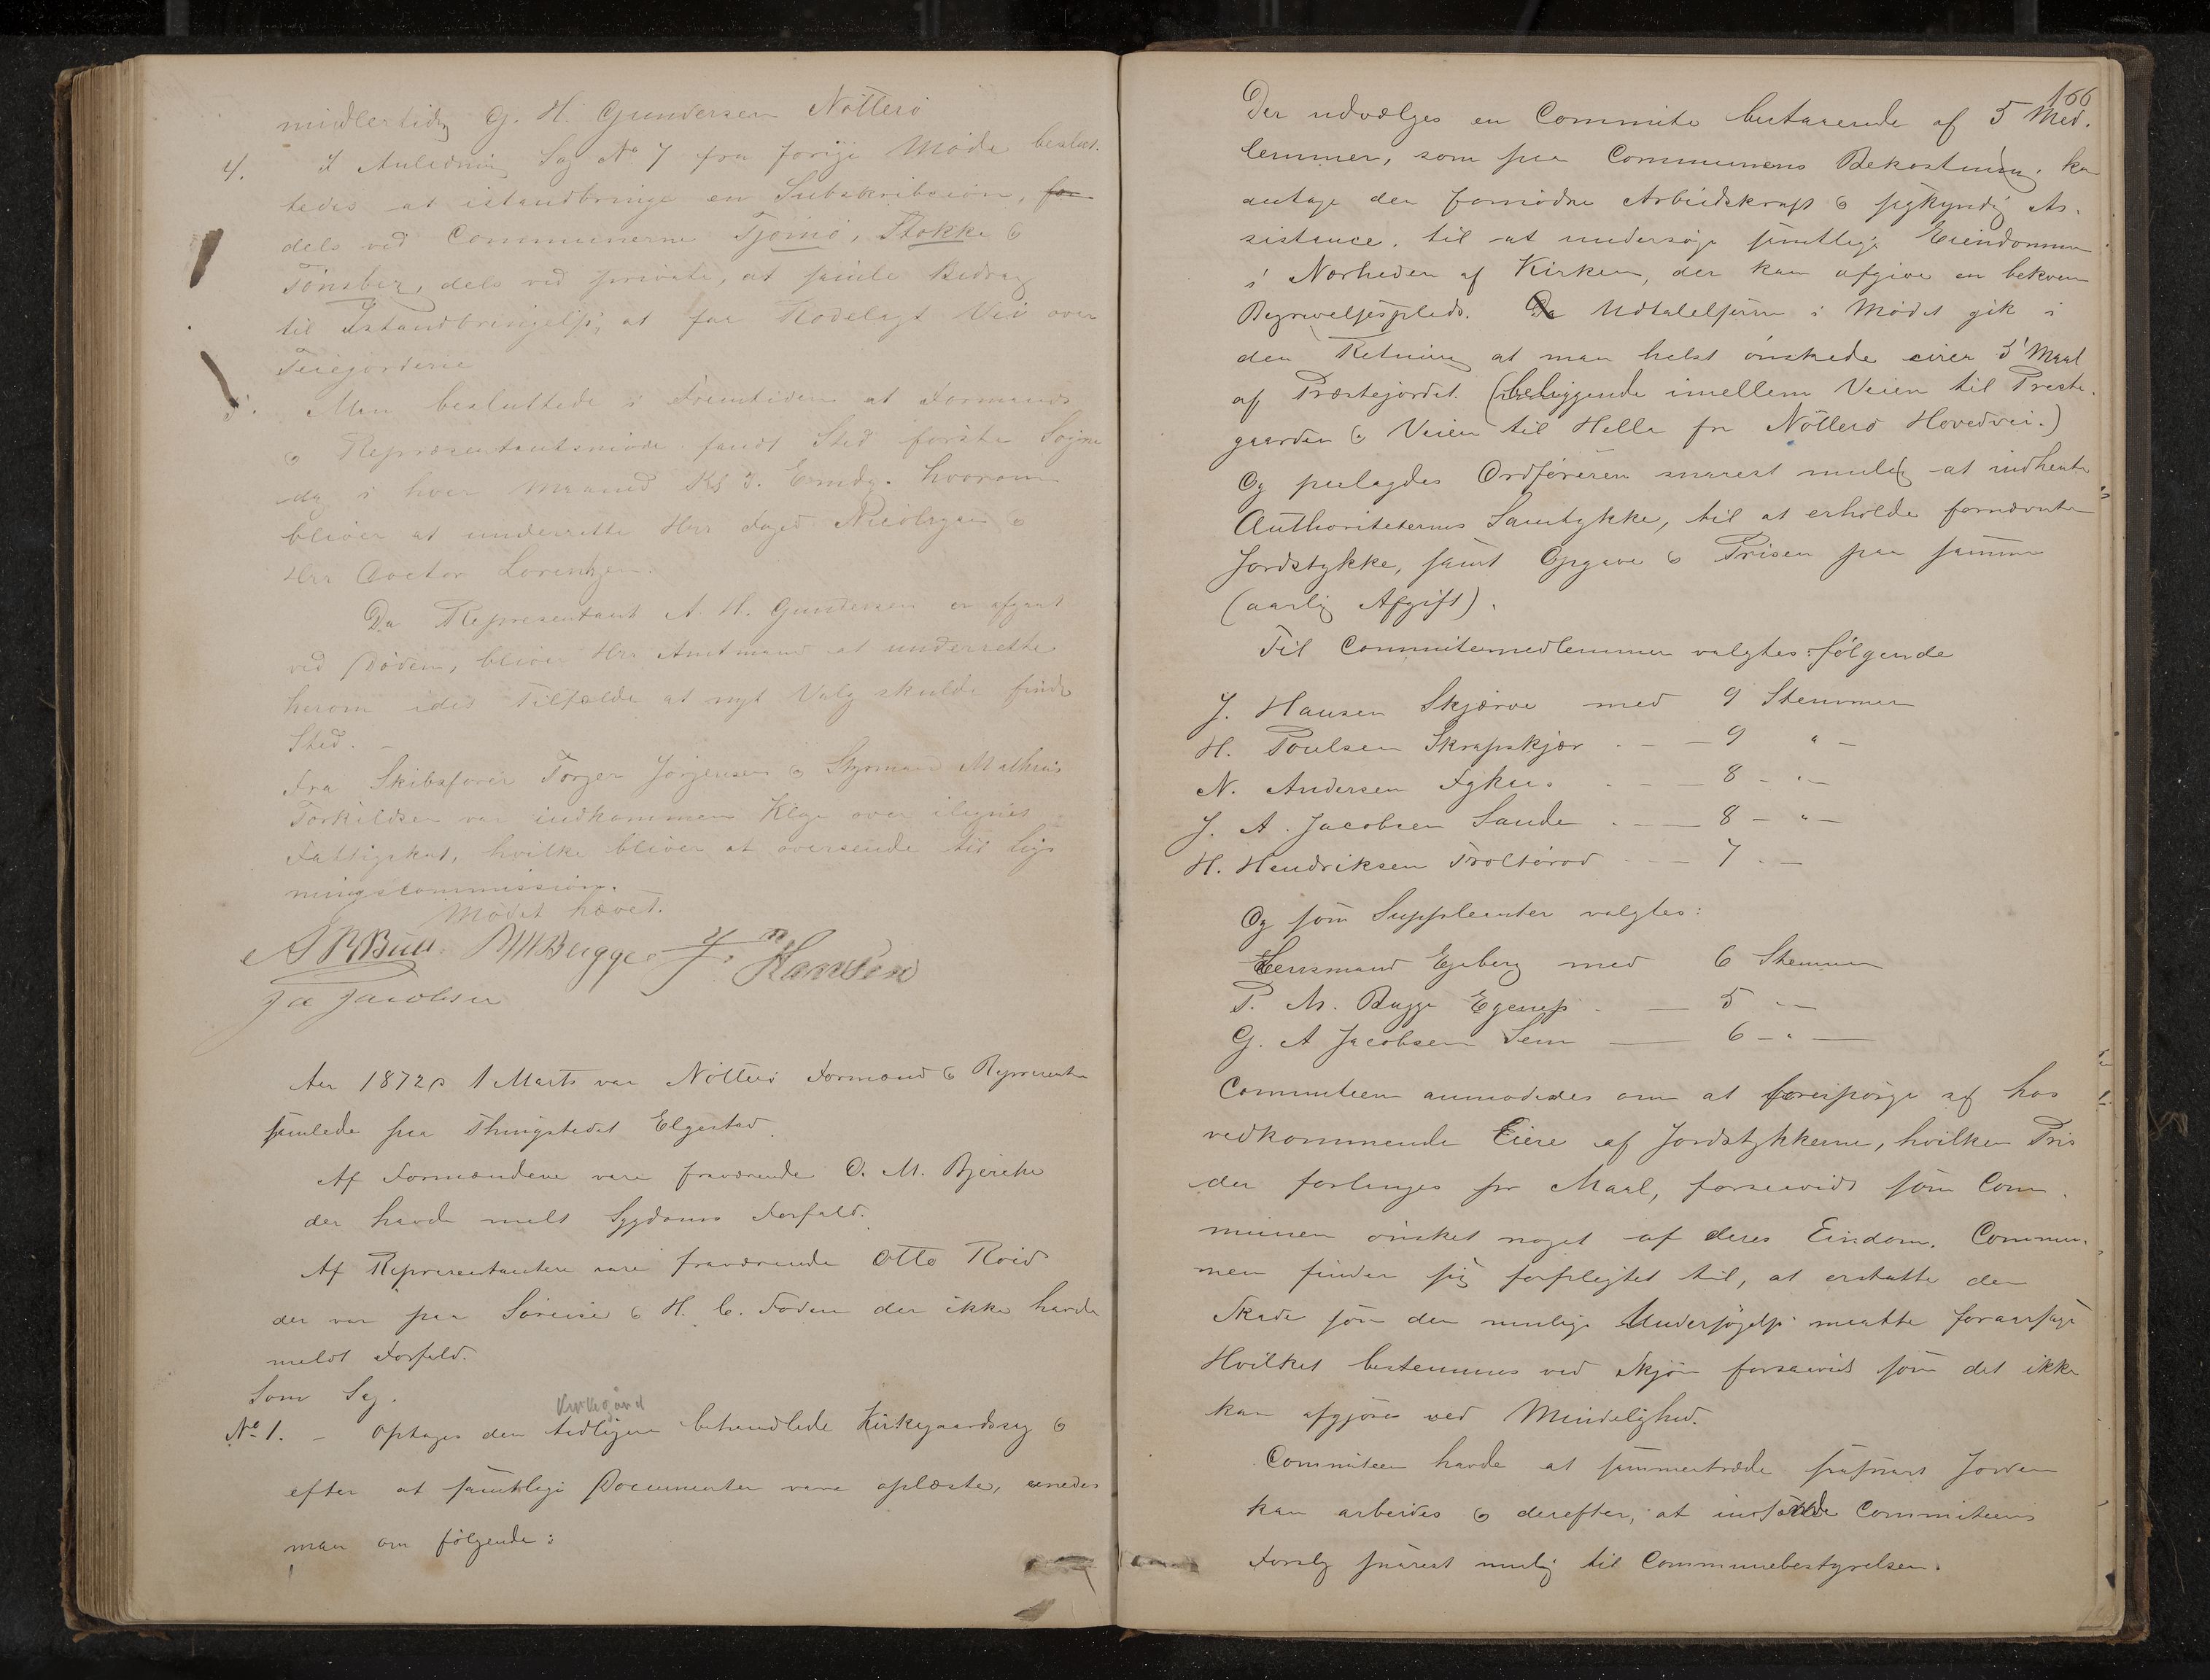 midlertidig G. H. Gundersen Nötterö
4. I Anledning Sag No 7 fra forige Möde beslut.
tedes at istandbringe en Subskribsion, for
dels ved Communerne Tjömö, Stokke &
Tönsberg, dels ved private, at samle Bidrag
til Istandbringelse, at faa Rodelagt Vei over
Teiejordene
5. Man besluttede i Fremtiden at Formands
& Repræsentantsmöde fandt Sted förste Sogne
dg i hver Maaned Kl 3. Emdg. hvorom
bliver at underrette Hrr Foged Nicolaysen &
Hrr Doctor Lorentzen.
Da Representant A. H. Gundersen er afgaat
ved Döden, bliver Hrr Amtmand at underrette
herom i det Tilfælde at nyt Valg skulde finde
Sted. -
Fra Skibsförer Torger Jörgensen & Styrmand Mathias
Torkildsen var indkommen Klage over ilignet
Fattigskat, hvilke bliver at oversende til Lig
ningscommission.
Mödet hævet.
A R Bull. P M Bugge J. Hansen
J A Jacobsen
Aar 1872 d 1 Marts var Nötterö Formænd & Representer
samlede paa Thingstedet Elgestad.
Af Formændene vare fraværende O. M. Bjerke
der havde meldt Sygdoms Forfald.
Af Representantene vare fraværende Otto Röed
der var paa Söreise & H. C. Foden der ikke havde
meldt Forfald.
Som Sag.
Kirkegård
No 1. - Optages den tidligere behandlede Kirkegaardssag &
efter at samtlige Documenter vare oplæste, enedes
man om fölgende:
166
Der udvælges en Commite bestaaende af 5 Med.
lemmer, som paa Communens Bekostning, kan
antage den fornödne Arbeidskraft & sagkyndig As.
sistance, til at undersöge samtlige Eiendomme
i Nærheden af Kirken, der kan afgive en bekvem
Begravelsesplads. Da Udtalelserne i Mödet gik i
den Retning at man helst önskede circa 5 Maal
af Præstejordet. (beliggende imellem Veien til Preste.
gaarden & Veien til Hella fra Nötterö Hovedvei.)
Og paalagdes Ordföreren snarest mulig at indhente
Authoriteternes Samtykke, til at erholde fornævnte
Jordstykke, samt Opgave & Prisen paa samme
(aarlig Afgift).
Til Commitemedlemmer valgtes fölgende
J. Hansen Skjærve med 9 Stemmer
H. Poulsen Skrapskjær - - 9 " -
N. Andersen - - 8 - " -
J. A. Jacobsen Sande - - 8 - " -
H. Hendriksen - - 7 - -
Og som Suppleanter valgtes:
Lensmand Egeberg med 6 Stemmer
P. M. Bugge Egenes - - 5 " -
G. A Jacobsen Sem - 6 - " -
Commiteen anmodedes om at forespörge sig hos
vedkommende Eiere af Jordstykkerne, hvilken Pris
der forlanges pr Maal, forsaavidt som Com.
munen önsket noget af deres Eindom. Commu.
nen finder sig forpligtet til, at erstatte den
Skade som den mulige Undersögelse maatte foraarsage
Hvilket bestemmes ved Skjön forsaavidt som det ikke
kan afgjöres ved Mindelighed.
Commiteen havde at sammentræde saasnart Jorden
kan arbeides & derefter, at indsende Commiteens
Forslag snarest mulig til Communebestyrelsen.